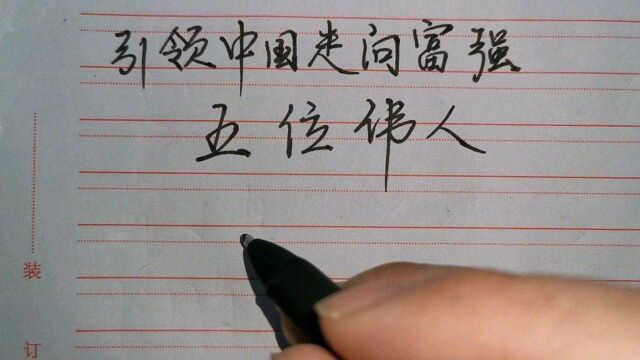 引领中国走向富强
五位伟人
装
订